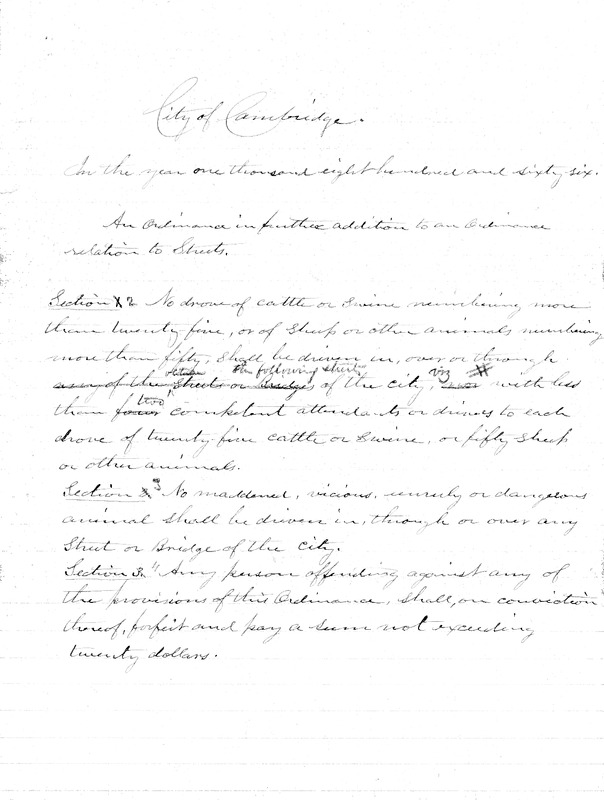 City of Cambridge.
In the year one thousand eight hundred and sixty six.
An Ordinance in further addition to an Ordinance
relation to Streets.
Section 2 No drove of cattle or Swine numbering more
than twenty five, or of Sheep or other animals numbering
more than fifty, shall be driven in, over or through
the following streets viz #
any of the Streets or Bridges of the city, with less
two
than four competent attendants or drivers to each
drove of twenty five cattle or Swine, or fifty Sheep
or other animals.
Section 3 No maddened, vicious, unruly or dangerous
animal shall be driven in, through or over any
Street or Bridge of the city.
Section 3. 4 Any person offending against any of
the provisions of this Ordinance, shall, on conviction
thereof, forfeit and pay a sum not exceeding
twenty dollars.